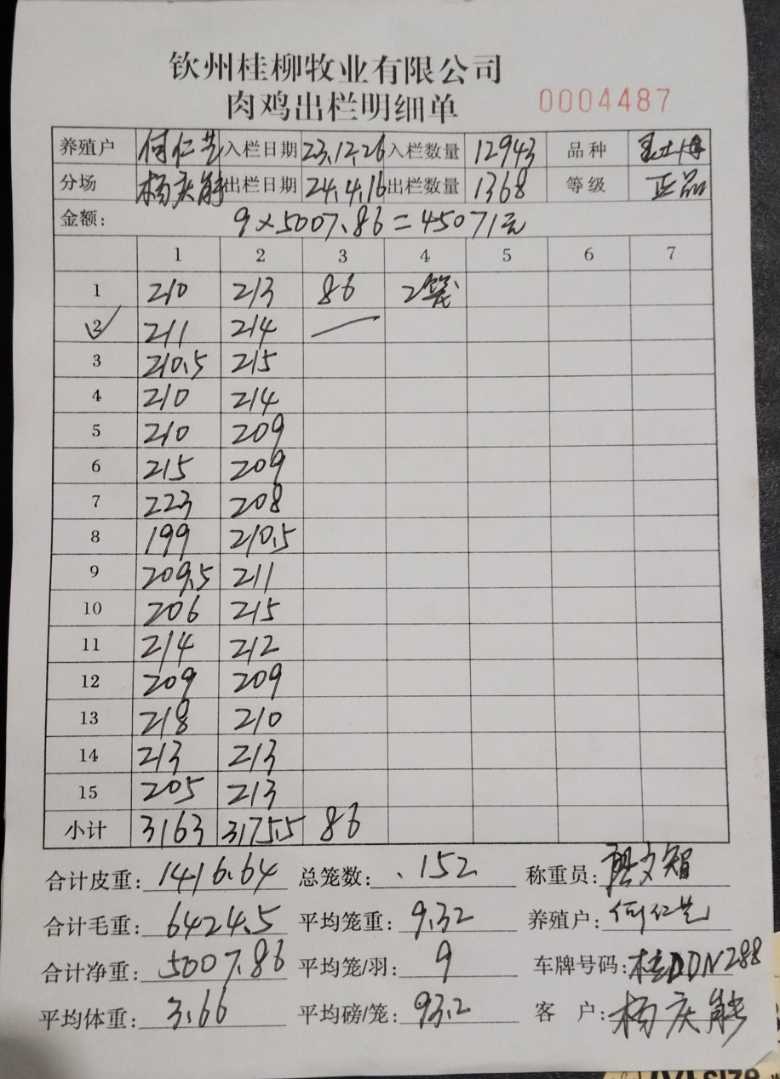 钦州桂柳牧业有限公司
肉鸡出栏明细单 0004487
养殖户 何仁芝 入栏日期 23.12.26 入栏数量 12943 品种
分场 杨庆能 出栏日期 24.4.16 出栏数量 1368 等级 正品
金额: 9×5007.86=45071元
1 2 3 4 5 6 7
1 210 213 86 2笼
2 211 214
3 210.5 215
4 210 214
5 210 209
6 215 209
7 223 208
8 199 210.5
9 209.5 211
10 206 215
11 214 212
12 209 209
13 218 210
14 213 213
15 205 213
小计 3163 3175.5 86
合计皮重: 1416.64 总笼数: 152 称重员: 文智
合计毛重: 6424.5 平均笼重: 9.32 养殖户: 何仁芝
合计净重: 5007.86 平均笼/羽: 9 车牌号码: 桂DDN288
平均体重: 3.66 平均磅/笼: 93.2 客户: 杨庆能